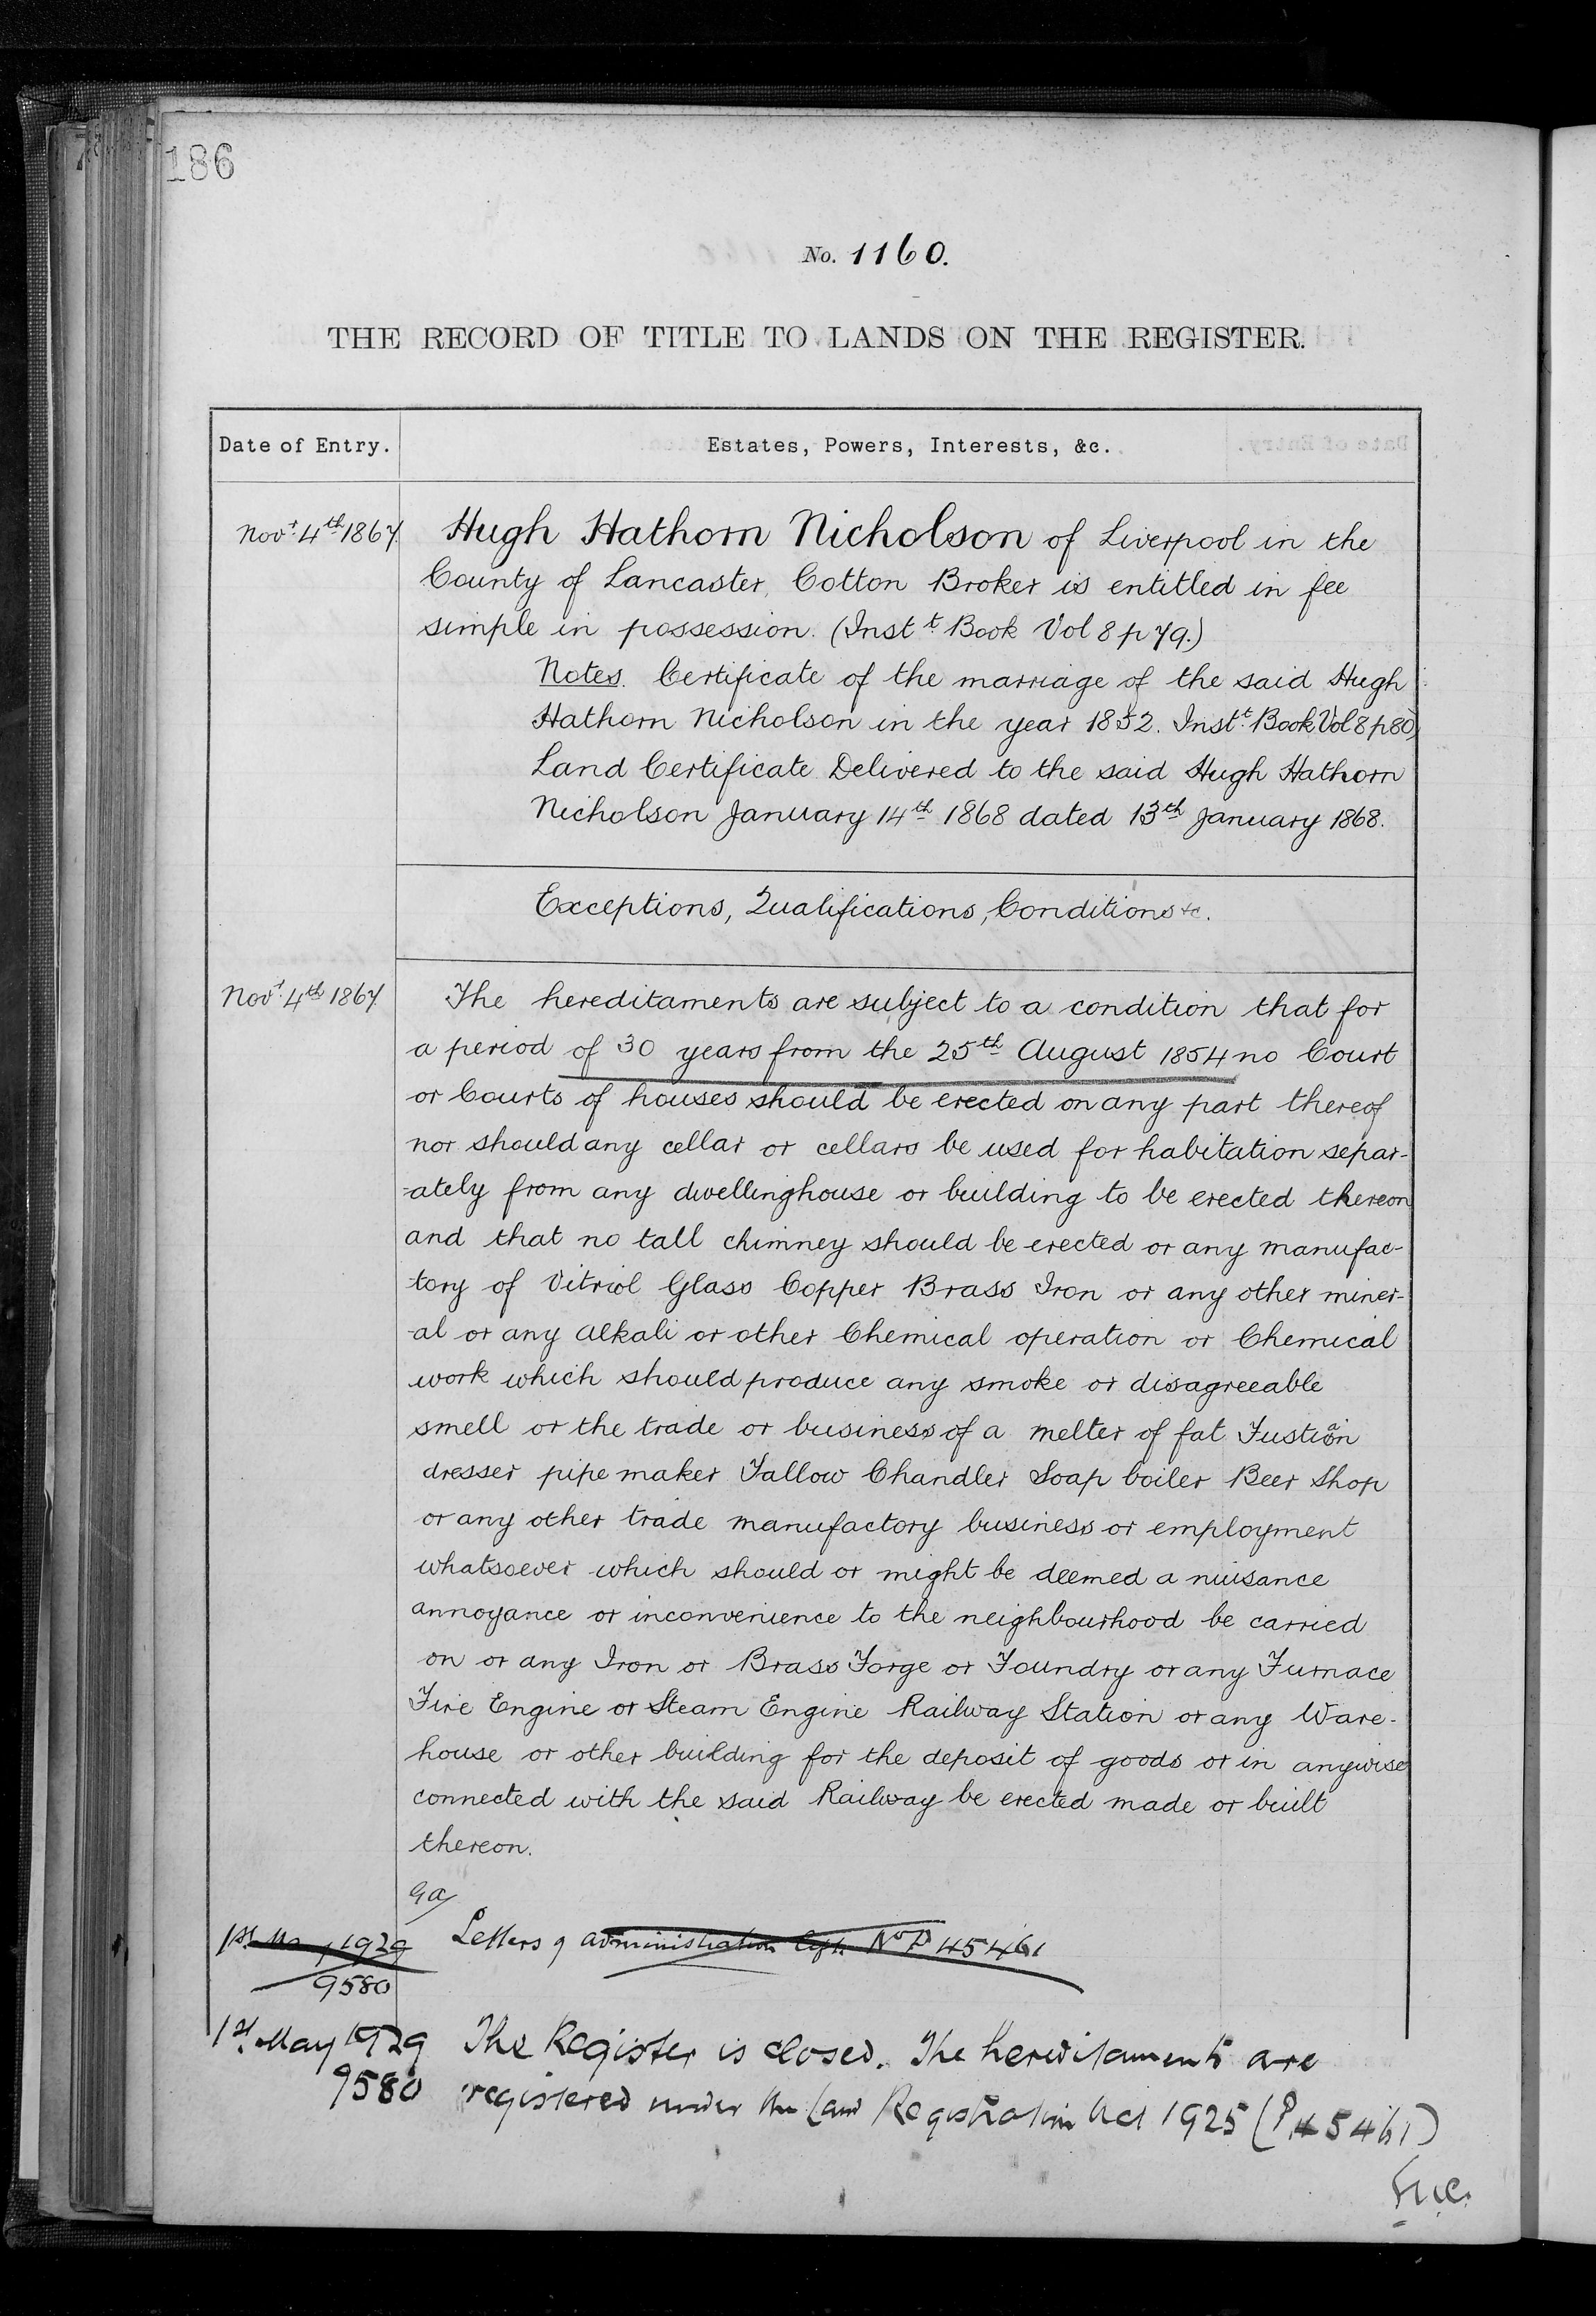 186
No. 1160.
THE RECORD OF TITLE TO LANDS ON THE REGISTER.
Date of Entry.
Estates, Powers, Interests, &c.
Novr 4th 1867
Hugh Hathorn Nicholson of Liverpool in the
County of Lancaster, Cotton Broker is entitled in fee
simple in possession. (Instt Book Vol 8 p 79.)
Notes. Certificate of the marriage of the said Hugh
Hathorn Nicholson in the year 1852. Instt Book Vol 8 p 80)
Land Certificate Delivered to the said Hugh Hathorn
Nicholson January 14th 1868 dated 13th January 1868.
Exceptions, Qualifications, Conditions &c.
Novr 4th 1867
The hereditaments are subject to a condition that for
a period of 30 years from the 25th August 1854 no Court
or Courts of houses should be erected on any part thereof
nor should any cellar or cellars be used for habitation separ-
-ately from any dwellinghouse or building to be erected thereon
and that no tall chimney should be erected or any manufac-
-tory of Vitriol Glass Copper Brass Iron or any other miner-
-al or any alkali or other Chemical operation or Chemical
work which should produce any smoke or disagreeable
smell or the trade or business of a melter of fat Fustian
dresser pipe maker Tallow Chandler Soap boiler Beer Shop
or any other trade manufactory business or employment
whatsoever which should or might be deemed a nuisance
annoyance or inconvenience to the neighbourhood be carried
on or any Iron or Brass Forge or Foundry or any Furnace
Fire Engine or Steam Engine Railway Station or any Ware-
house or other building for the deposit of goods or in anywise
connected with the said Railway be erected made or built
thereon.
1st May 1929
9580
Letters of administration No P 45461
1st May 1929
9580
The Register is closed. The hereditaments are
registered under the Land Registration Act 1925 (P.45461)